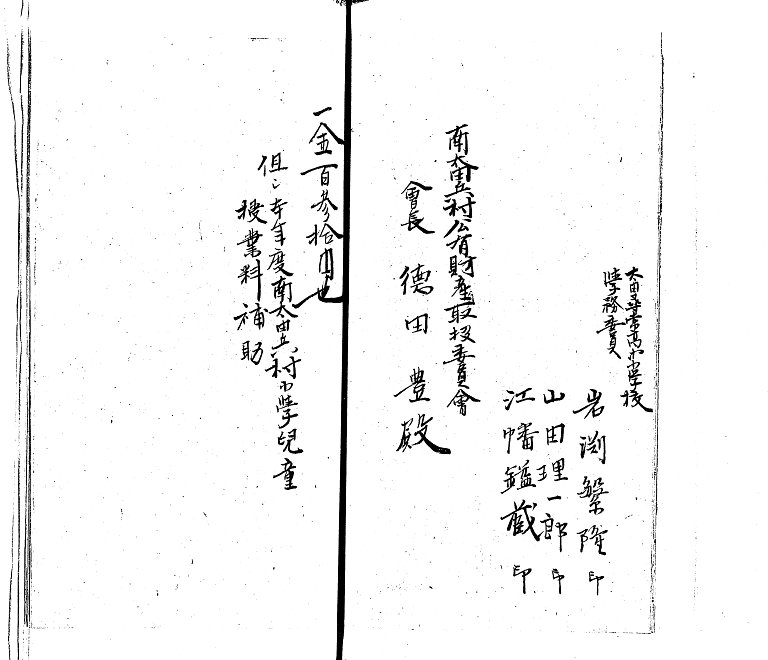 太田立尋常高小学校
學務委員
岩渕繁隆 印
山田理一郎 印
江幡鎰蔵 印
南太田立村公有財產取扱委員會
會長 德田豊殿
一金百參拾円也
但シ本年度南太田立村小學兒童
授業料補助